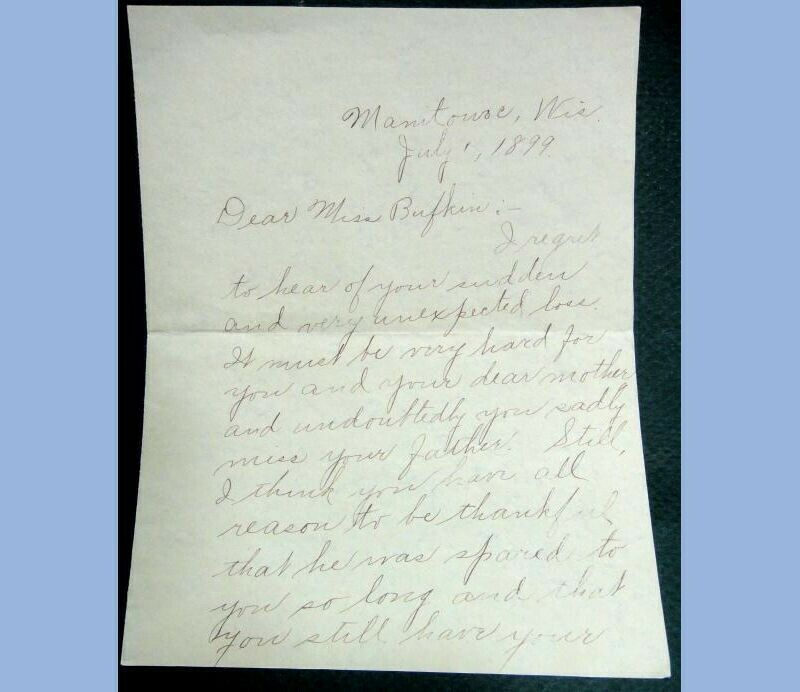 Manitowoc, Wis.
July 1, 1899.
Dear Miss Bufkin:-
I regret
to hear of your sudden
and very unexpected loss.
It must be very hard for
you and your dear mother
and undoubtedly you sadly
miss your father. Still,
I think you have all
reason to be thankful
that he was spared to
you so long and that
you still have your